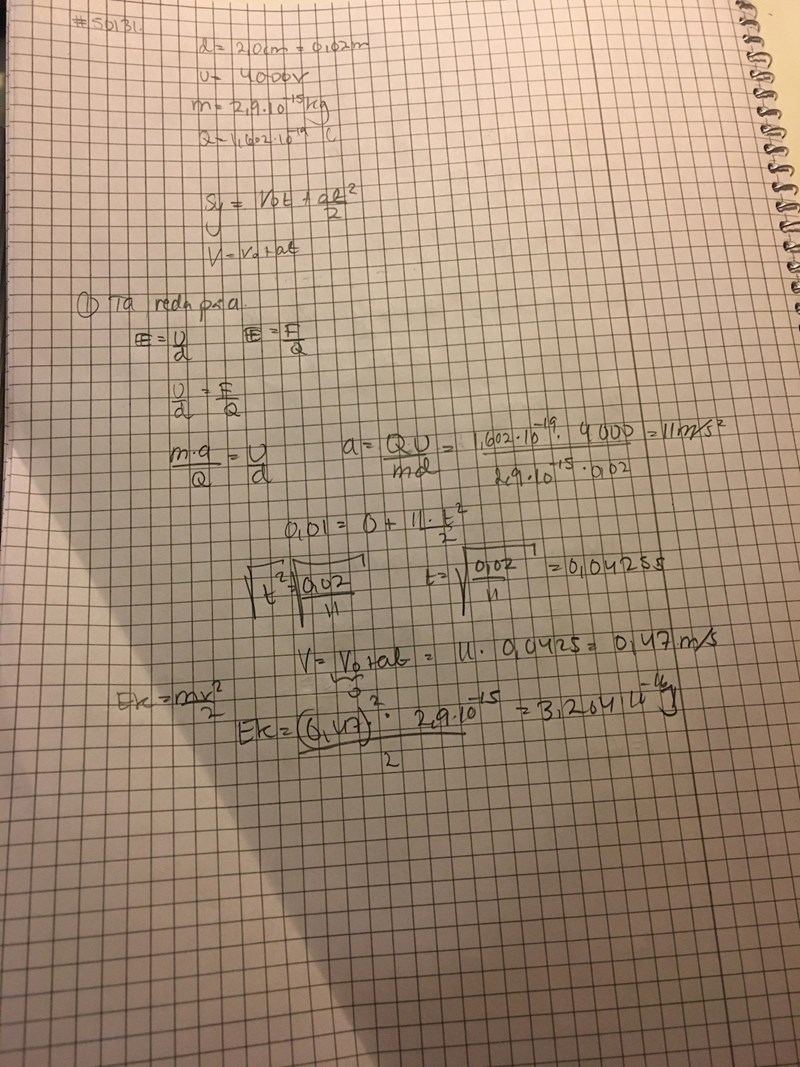 #50131.
d = 2,0cm = 0,02m
U = 4000V
m = 2,9·10⁻¹⁵kg
Q = 1,602·10⁻¹⁹ C
Sy = V₀t + at²/2
V = V₀+at
① Ta reda på a.
E = U/d E = F/Q
U/d = F/Q
m·a/Q = U/d a = QU/md = 1,602·10⁻¹⁹· 4000/2,9·10⁻¹⁵·0,02 = 11m/s²
0,01 = 0 + 11·t²/2
√t² = √0,02/11 t = √0,02/11 = 0,0425s
V = V₀+at = 11· 0,0425 = 0,47 m/s
0
Ek = mv²/2
Ek = (0,47)² · 2,9·10⁻¹⁵/2 = 3,204·10⁻¹⁶J